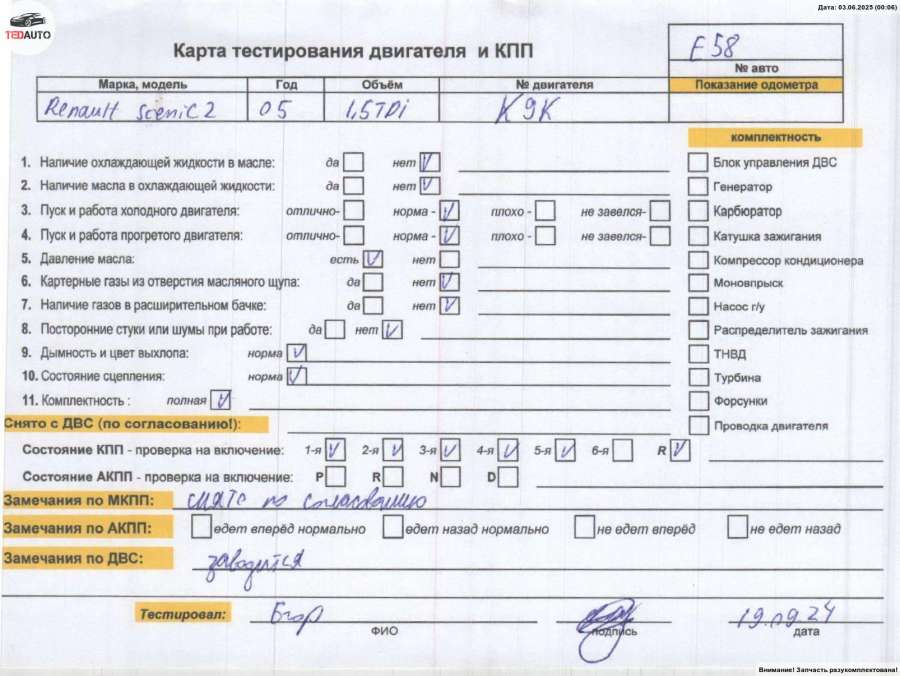 Дата: 03.06.2025 (00:06)
TEDAUTO
Карта тестирования двигателя и КПП
E58
№ авто
Марка, модель Год Объём № двигателя Показание одометра
Renault Scenic 2 05 1,5TDi K9K
комплектность
1. Наличие охлаждающей жидкости в масле: да нет V Блок управления ДВС
2. Наличие масла в охлаждающей жидкости: да нет V Генератор
3. Пуск и работа холодного двигателя: отлично- норма - V плохо - не завелся- Карбюратор
4. Пуск и работа прогретого двигателя: отлично- норма - V плохо - не завелся- Катушка зажигания
5. Давление масла: есть V нет Компрессор кондиционера
6. Картерные газы из отверстия масляного щупа: да нет V Моновпрыск
7. Наличие газов в расширительном бачке: да нет V Насос г/у
8. Посторонние стуки или шумы при работе: да нет V Распределитель зажигания
9. Дымность и цвет выхлопа: норма V ТНВД
10. Состояние сцепления: норма V Турбина
11. Комплектность : полная V Форсунки
Снято с ДВС (по согласованию!): Проводка двигателя
Состояние КПП - проверка на включение: 1-я V 2-я V 3-я V 4-я V 5-я V 6-я R V
Состояние АКПП - проверка на включение: P R N D
Замечания по МКПП: снято по согласованию
Замечания по АКПП: едет вперёд нормально едет назад нормально не едет вперёд не едет назад
Замечания по ДВС: заводится
Тестировал: Егор 19.09.24
ФИО подпись дата
Внимание! Запчасть разукомплектована!